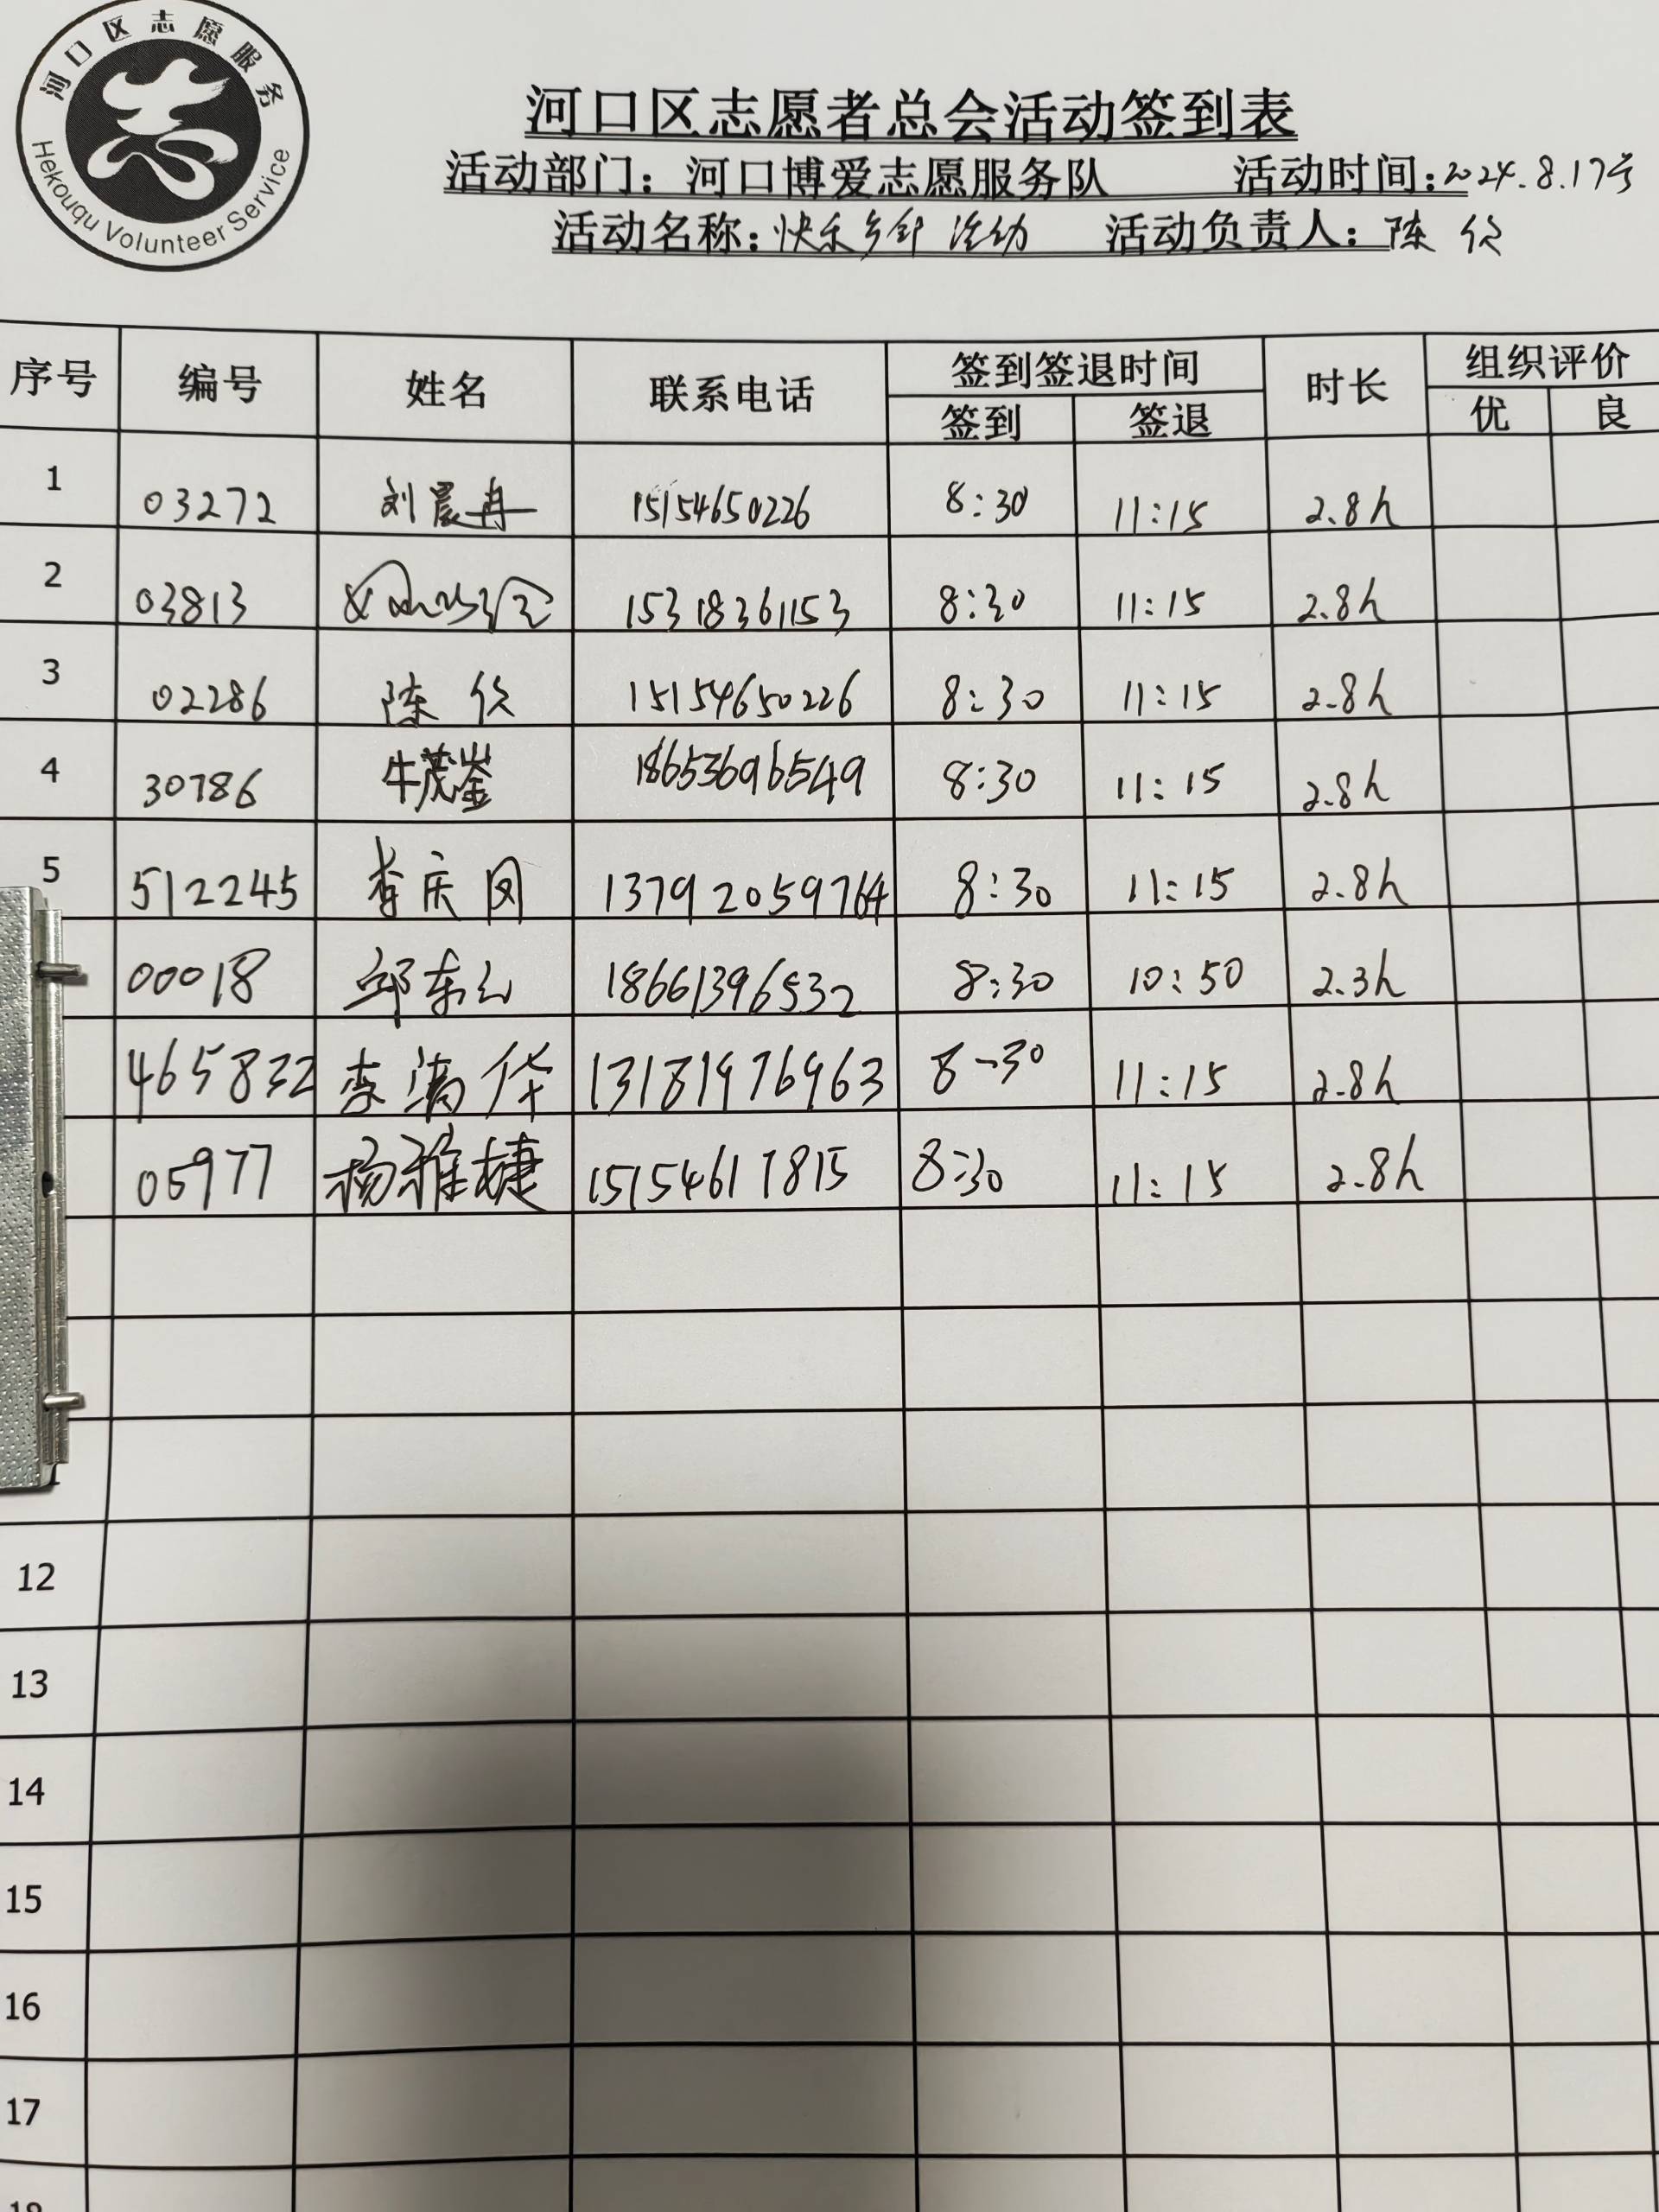 河口区志愿服务
Hekouqu Volunteer Service
河口区志愿者总会活动签到表
活动部门：河口博爱志愿服务队 活动时间：2024.8.17号
活动名称：快乐乡邻活动 活动负责人：陈
序号 编号 姓名 联系电话 签到签退时间 时长 组织评价
签到 签退 优 良
1 03272 刘晨冉 15154650226 8:30 11:15 2.8h
2 03813 15318361153 8:30 11:15 2.8h
3 02286 陈 15154650226 8:30 11:15 2.8h
4 30786 牛茂崟 18653696549 8:30 11:15 2.8h
5 512245 李庆凤 13792059764 8:30 11:15 2.8h
00018 邱东 18661396532 8:30 10:50 2.3h
465832 李满华 13181976963 8-30 11:15 2.8h
05977 杨雅捷 15154617815 8:30 11:15 2.8h
12
13
14
15
16
17
18